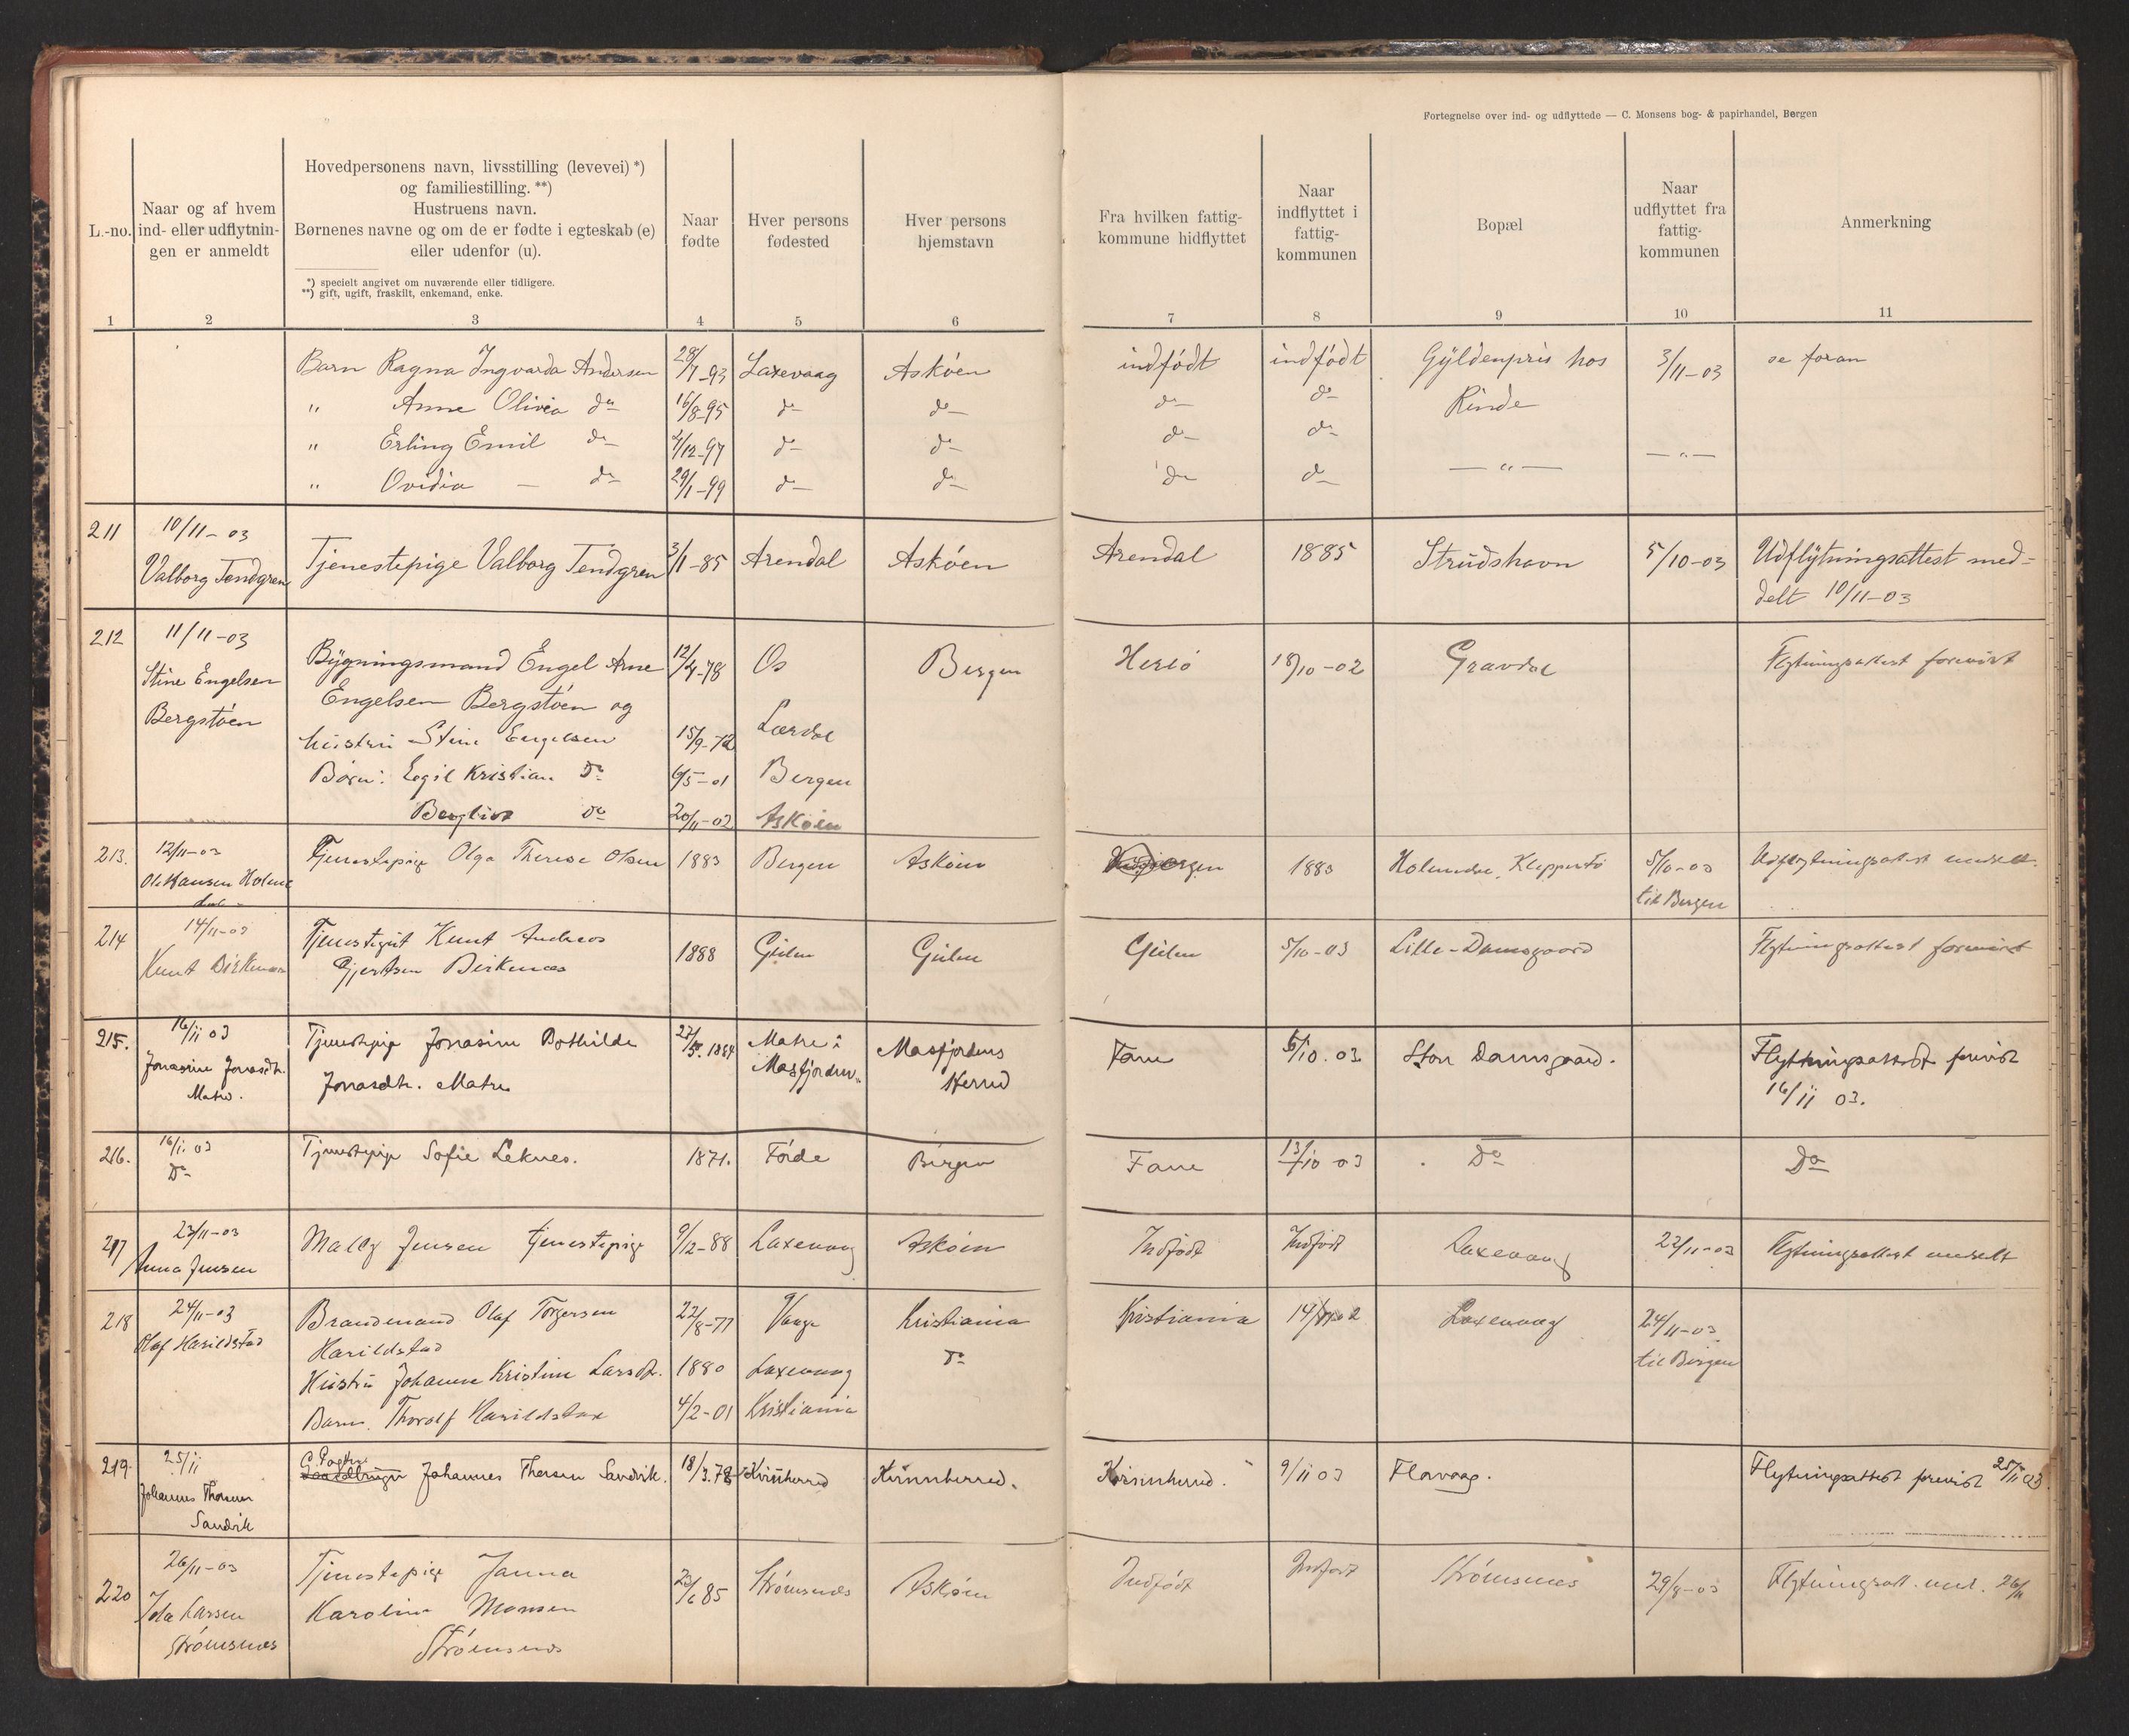 Fortegnelse over ind- og udflyttede — C. Monsens bog- & papirhandel, Bergen
L.-no.
Naar og af hvem
ind- eller udflytnin-
gen er anmeldt
Hovedpersonens navn, livsstilling (levevei) *)
og familiestilling. **)
Hustruens navn.
Børnenes navne og om de er fødte i egteskab (e)
eller udenfor (u).
*) specielt angivet om nuværende eller tidligere.
**) gift, ugift, fraskilt, enkemand, enke.
Naar
fødte
Hver persons
fødested
Hver persons
hjemstavn
Fra hvilken fattig-
kommune hidflyttet
Naar
indflyttet i
fattig-
kommunen
Bopæl
Naar
udflyttet fra
fattig-
kommunen
Anmerkning
1 2 3 4 5 6 7 8 9 10 11
Barn Ragna Ingvarda Andersen 28/7-93 Laxevaag Askøen indfødt indfødt Gyldenpris hos 3/11-03 se foran
" Anne Olivia do 16/8-95 do do do do Rinde
" Erling Emil do /12-97 do do do do
" Ovidia — do 29/1-99 do do do do — " — — " —
211 10/11-03
Valborg Tendgren Tjenestepige Valborg Tendgren 3/1-85 Arendal Askøen Arendal 1885 Strudshavn 5/10-03 Udflytningsattest med-
delt 10/11-03
212 11/11-03
Stine Engelsen Bygningsmand Engel Arne 12/4-78 Os Bergen Herlø 18/10-02 Gravdal Flytningsattest forevist
Bergstøen Engelsen Bergstøen og
hustru Stine Engelsen 15/9-72 Lærdal
Børn: Eegil Kristian Do 6/5-01 Bergen
Bergliot do 20/11-02 Askøen
213. 12/11-03 Tjenestepige Olga Therese Olsen 1883 Bergen Askøen Bergen 1883 Holmedal, Kleppestø 5/10-03 Udflytningsattest meddelt.
Ole Hansen Holme
dal til Bergen
214 14/11-03 Tjenestegut Knut Andreas
Knut Birkenæs Gjertsen Birkenæs 1888 Gulen Gulen Gulen 5/10-03 Lille-Damsgaard Flytningsattest forevist
215. 16/11 03 Tjenestepige Jonasine Bothilde 27/5. 1884 Matre i Masfjordens Fane 6/10. 03. Store Damsgaard. Flytningsattest forevist
Jonasine Jonasdtr. Jonasdtr. Matre Masfjorden Herred 16/11 03.
Matre.
216. 16/11 03 Tjenestepige Sofie Leknes. 1871. Førde Bergen Fane 13/10 03 Do Do
Do
217 23/11-03 Mally Jensen tjenestepige 9/12-88 Laxevaag Askøen Indfødt Indfødt Laxevaag 22/11-03 Flytningsattest meddelt
Anna Jensen
218 24/11-03 Brandmand Olaf Torgersen 22/8-77 Vang Kristiania Kristiania Laxevaag 24/11-03
Olaf Harildstad Harildstad til Bergen
Hustru Johanne Kristine Larsdtr. 1880 Laxevaag do
Barn. Thoralf Harildstad 4/2-01 Kristiania
219. 25/11 Johannes Thorsen Sandvik. 18/3.78 Kvinnherred Kvinnherred. Kvinnherred. 9/11 03 Florvaag. Flytningsattest forevist 25/11 03.
Johannes Thorsen
Sandvik
220 26/11-03 Tjenestepige Janna 23/6 85 Strømsnes Askøen Indfødt Indfødt Strømsnes 29/8-03 Flytningsatt. med. 26/11
Ida Larsen Karoline Monsen
Strømsnes Strømsnes